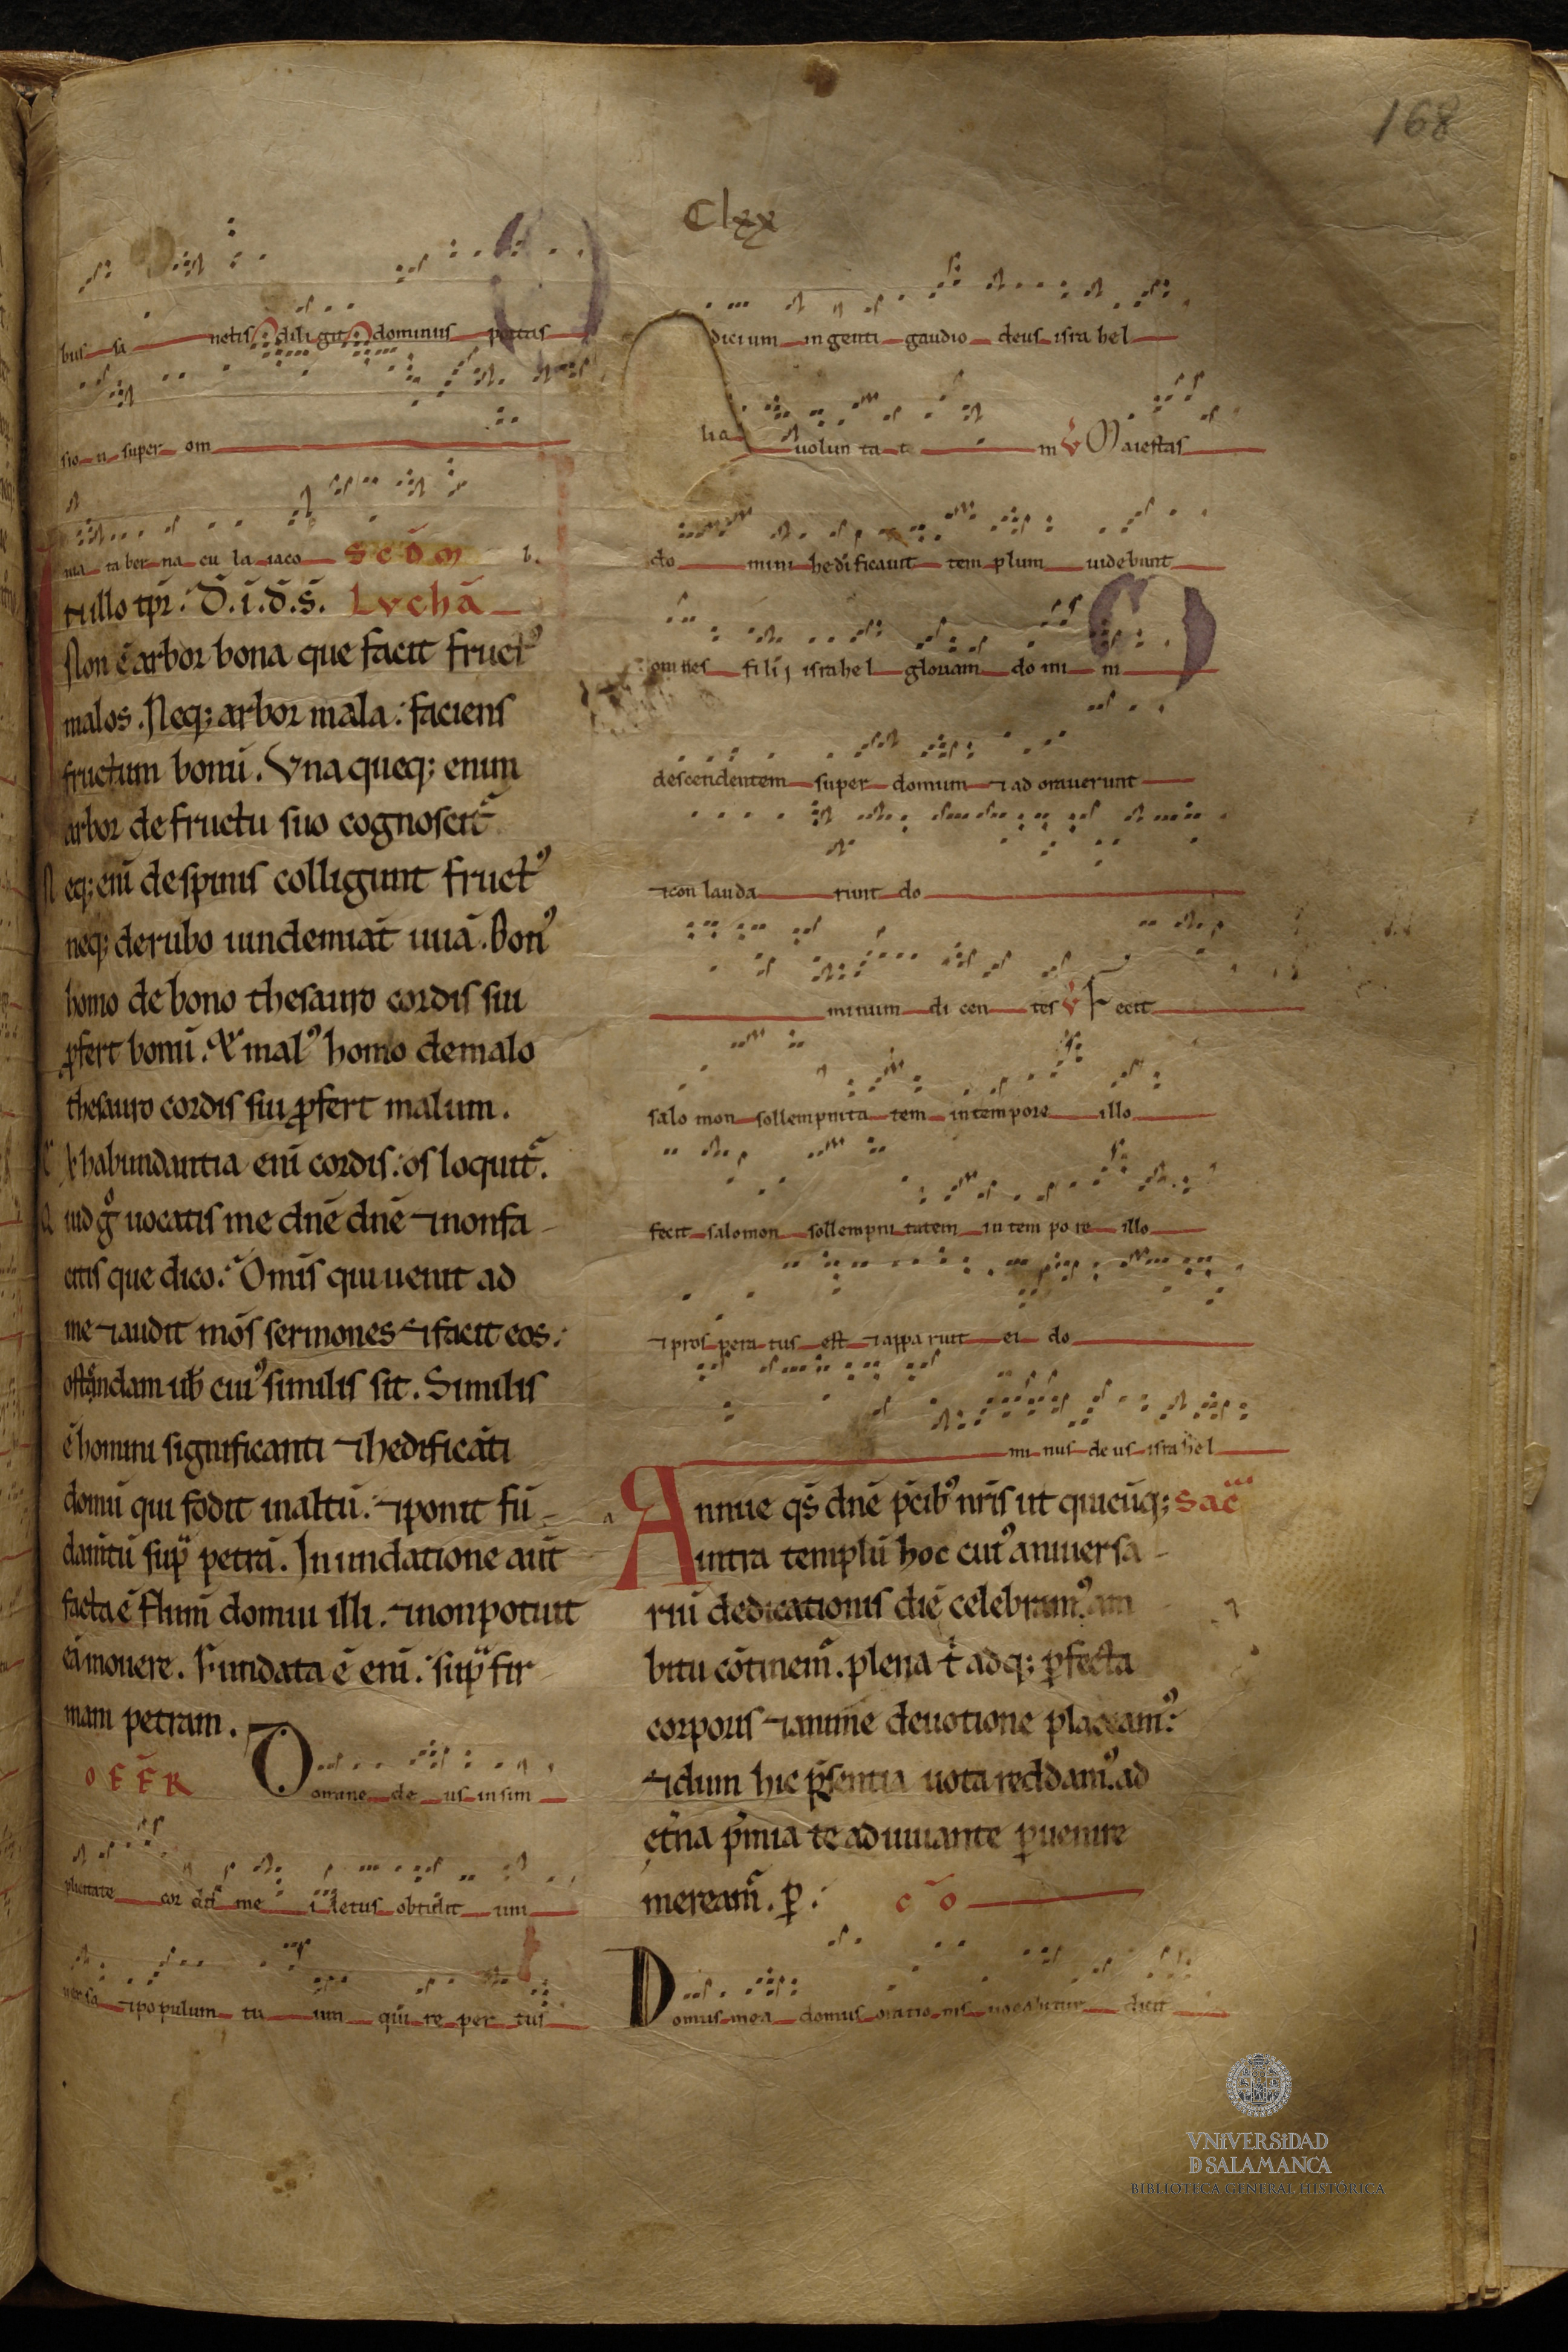 168
Clxx
bus sa netis diligit dominus portas
sion super om
nia taber na cu la iaco b.
SCDM
In illo tpr̄. D̄.ī.d̄.s̄. Lvchā
Non ē arbor bona que facit fruct᾿
malos. Neq; arbor mala: faciens
fructum bonū. Vnaqueq; enim
arbor de fructu suo cognoscit᷑
Neq; enī de spinis colligunt fruct᾿
neq; de rubo uindemiāt uuā. Bon᾿
homo de bono thesauro cordis sui
ꝓfert bonū. Et mal᾿ homo de malo
thesauro cordis sui ꝓfert malum.
Ex habundantia enī cordis: os loquit᷑.
Quid gͦ uocatis me dnē dnē ⁊ non fa
citis que dico: Omīs qui uenit ad
me ⁊ audit meos sermones ⁊ facit eos:
ostendam uob̄ cui᾿ similis sit. Similis
ē homini significanti ⁊ hedificāti
domū qui fodit in altū: ⁊ ponit fū
damtū sup petrā. Inundatione aūt
facta ē flum̄ domui illi. ⁊ non potuit
eā mouere. Fundata ē enī: sup fir
mam petram.
OFFR Domine de us in sim
plicitate cor dis me i letus obtulit uni
uersa ⁊ populum tu um qui re per tus
dicium in genti gaudio deus isra hel
hac uolun ta te m V Maiestas
do mini hedificauit tem plum uidebant
omnes filij israhel gloriam do mi ni
descendentem super domum ⁊ ad orauerunt
⁊ con lauda runt do
minum di cen tes V Fecit
salo mon sollempnita tem in tempore illo
fecit salomon sollempni tatem in tem po re illo
⁊ pros pera tus est ⁊ appa ruit ei do
mi nus de us isra hel
Annue qs̄ dnē p̄cib᾿ nr̄is ut quicūq; Sac̄
intra templū hoc cui᾿ anniuersa
riū dedicationis diē celebram᾿ am
bitu cōtinem᷑. plena t̄ adq; ꝑfecta
corporis ⁊ anime deuotione placeam᾿:
⁊ dum hic p̄sentia uota reddam᾿. ad
et̄na p̄mia te adiuuante ꝑuenire
mereamr̄. ꝑ: c̄o
Domus mea domus oratio nis uocabitur dicit
VNiVERSiDAD
D SALAMANCA
BIBLIOTECA GENERAL HISTÓRICA